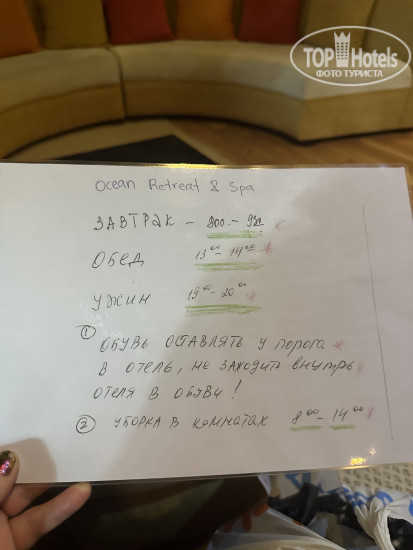 TOP Hotels
ФОТО ТУРИСТА
Ocean Retreat & Spa
ЗАВТРАК – 800 –
ОБЕД 13 00 – 14 00
УЖИН 19 00 – 20 00
① ОБУВЬ ОСТАВЛЯТЬ У ПОРОГА
В ОТЕЛЬ, НЕ ЗАХОДИТЬ ВНУТРЬ
ОТЕЛЯ В ОБУВИ!
② УБОРКА В КОМНАТАХ 8 00 – 14 00